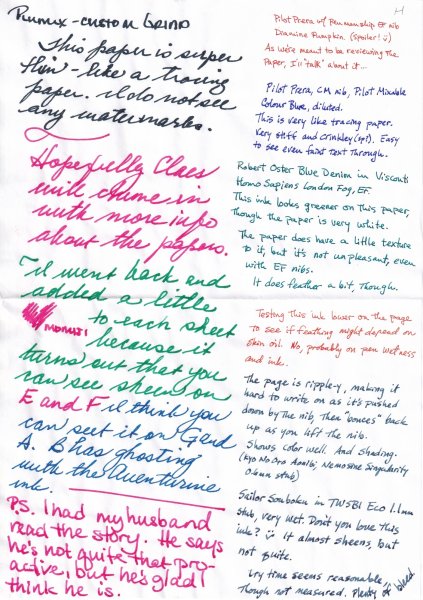 Pumix - custom Grind
This paper is super
thin - like a tracing
paper. I do not see
any watermarks.
Hopefully Claes
will chime in
with more info
about the papers.
I went back and
added a little
to each sheet
because it
turns out that you
can see sheen on
E and F I think you
can see it on G and
A. B has ghosting
with the Aventurine
ink.
P.S. I had my husband
read the story. He says
he's not quite that pro-
active, but he's glad I
think he is.
H
Pilot Prera w/ Penmanship EF nib
Diamine Pumpkin. (Spoiler!)
As we're meant to be reviewing the
Paper, I'll "talk" about it...
Pilot Prera, CM nib, Pilot Mixable
Colour Blue, diluted.
This is very like tracing paper.
Very stiff and crinkley (sp?). Easy
to see even faint text through.
Robert Oster Blue Denim in Visconti
Homo Sapiens London Fog, EF.
This ink looks greener on this paper,
though the paper is very white.
The paper does have a little texture
to it, but it's not unpleasant, even
with EF nibs.
It does feather a bit, though.
Testing this ink lower on the page
to see if feathing might depend on
skin oil. No, probably on pen wetness
and ink.
The page is ripple-y, making it
hard to write on as it's pushed
down by the nib, then "bounces" back
up as you lift the nib.
Shows color well. And shading.
(Kyo No Oto Aonibi, Nemosine Singularity
0.6mm stub)
Sailor Souboku in TWSBI Eco 1.1mm
stub, very wet. Don't you love this
ink? It almost sheens, but
not quite.
Dry time seems reasonable,
though not measured. Plenty of
bleed